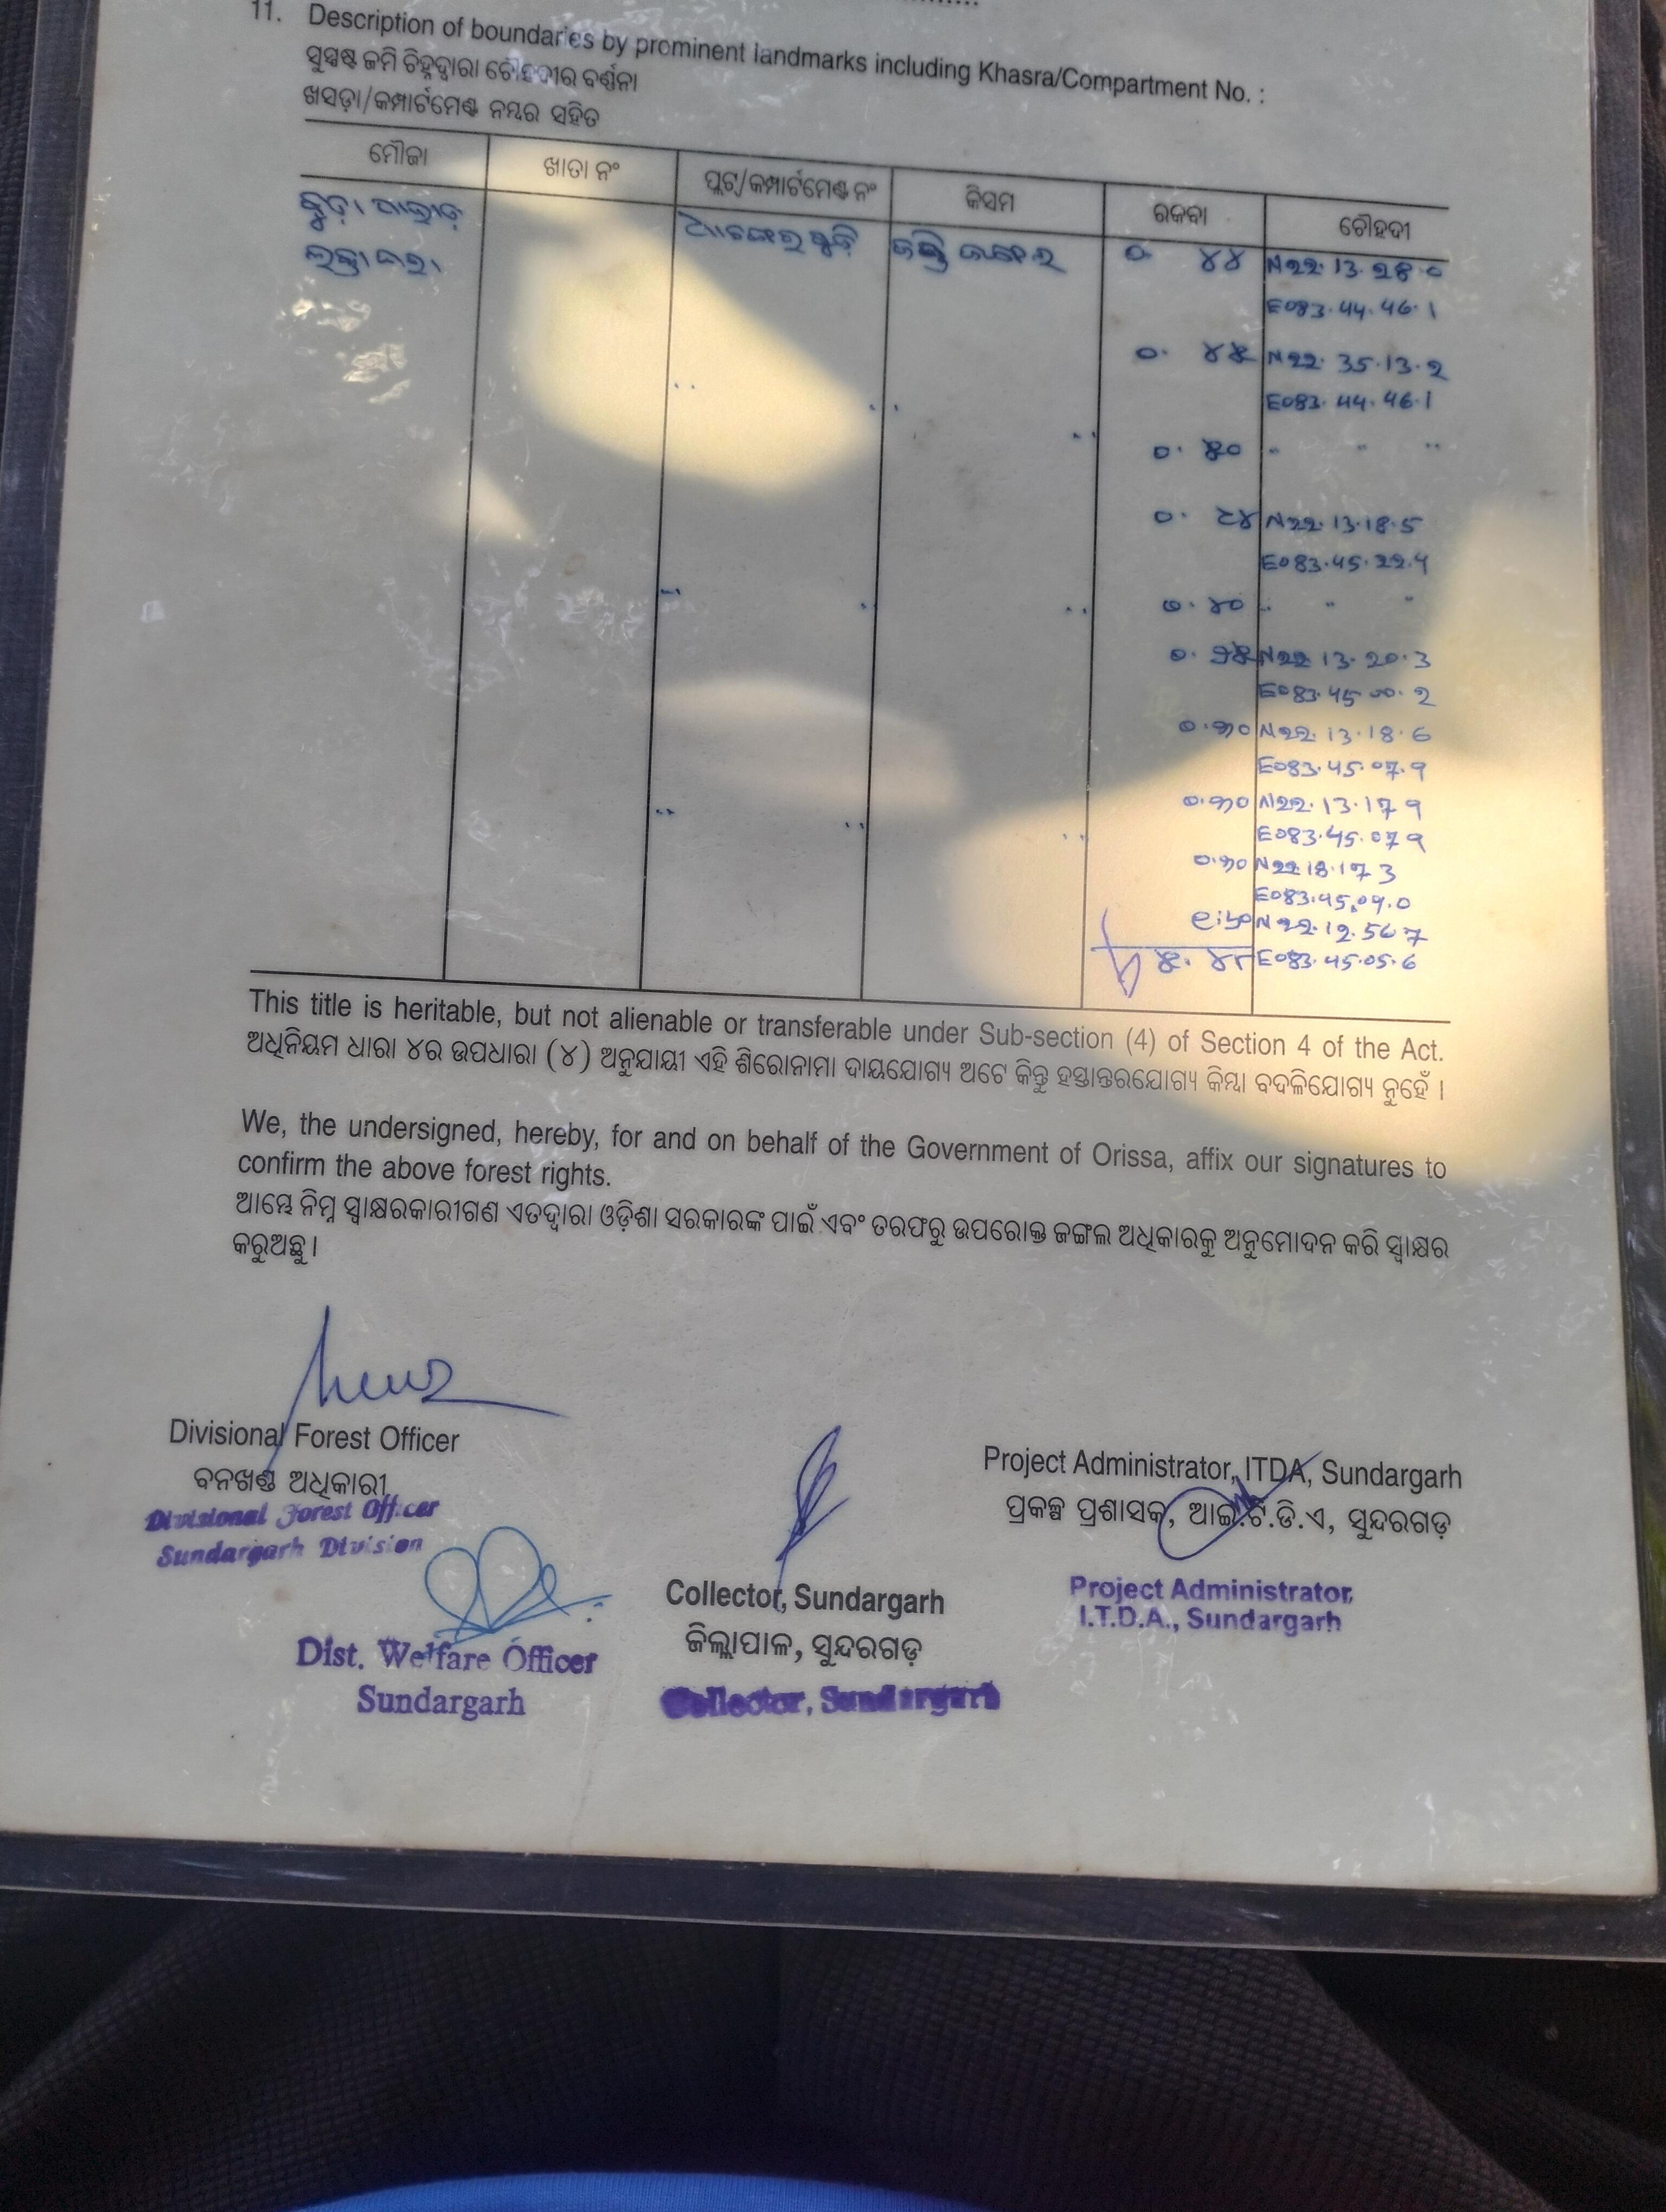 11. Description of boundaries by prominent landmarks including Khasra/Compartment No. :
ସୁସ୍ପଷ୍ଟ ଜମି ଚିହ୍ନଦ୍ୱାରା ଚୌହଦୀର ବର୍ଣ୍ଣନା
ଖସଡ଼ା/କମ୍ପାର୍ଟମେଣ୍ଟ ନମ୍ବର ସହିତ
ମୌଜା ଖାତା ନଂ ପ୍ଲଟ୍/କମ୍ପାର୍ଟମେଣ୍ଟ ନଂ କିସମ ରକବା ଚୌହଦୀ
୦. ୪୪ N22. 13. 28. 0
E083. 44. 46. 1
N22. 35. 13. 2
E083. 44. 46. 1
N22. 13. 18. 5
E083. 45. 22. 4
୦. ୪୦
N22. 13. 20. 3
E083. 45. 00. 2
୦.୩୦ N22. 13. 18. 6
E083. 45. 07. 9
୦.୩୦ N22. 13. 17 9
E083. 45. 07 9
୦.୩୦ N22. 18. 17 3
E083. 45. 09. 0
N22. 12. 56 7
E083. 45. 05. 6
This title is heritable, but not alienable or transferable under Sub-section (4) of Section 4 of the Act.
ଅଧିନିୟମ ଧାରା ୪ର ଉପଧାରା (୪) ଅନୁଯାୟୀ ଏହି ଶିରୋନାମା ଦାୟଯୋଗ୍ୟ ଅଟେ କିନ୍ତୁ ହସ୍ତାନ୍ତରଯୋଗ୍ୟ କିମ୍ବା ବଦଳିଯୋଗ୍ୟ ନୁହେଁ ।
We, the undersigned, hereby, for and on behalf of the Government of Orissa, affix our signatures to
confirm the above forest rights.
ଆମ୍ଭେ ନିମ୍ନ ସ୍ୱାକ୍ଷରକାରୀଗଣ ଏତଦ୍ୱାରା ଓଡ଼ିଶା ସରକାରଙ୍କ ପାଇଁ ଏବଂ ତରଫରୁ ଉପରୋକ୍ତ ଜଙ୍ଗଲ ଅଧିକାରକୁ ଅନୁମୋଦନ କରି ସ୍ୱାକ୍ଷର
କରୁଅଛୁ ।
Divisional Forest Officer
ବନଖଣ୍ଡ ଅଧିକାରୀ
Divisional Forest Officer
Sundargarh Division
Dist. Welfare Officer
Sundargarh
Collector, Sundargarh
ଜିଲ୍ଲାପାଳ, ସୁନ୍ଦରଗଡ଼
Collector, Sundargarh
Project Administrator, ITDA, Sundargarh
ପ୍ରକଳ୍ପ ପ୍ରଶାସକ, ଆଇ.ଟି.ଡି.ଏ, ସୁନ୍ଦରଗଡ଼
Project Administrator,
I.T.D.A., Sundargarh